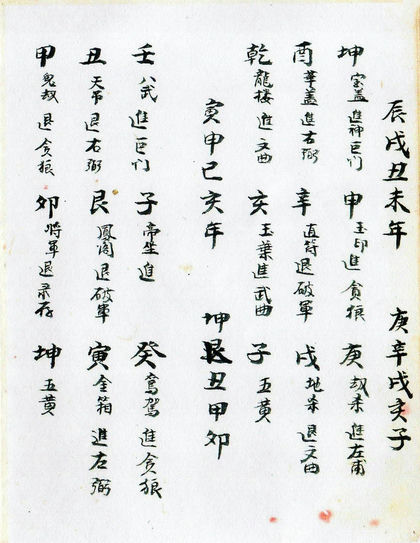 辰戌丑未年 庚辛戌亥子
坤 宝盖進神巨门 申 玉印進貪狼 庚 劫杀進左甫
酉 華盖進右弼 辛 直符退破軍 戌 地杀退文曲
乾 龍楼進文曲 亥 玉葉進武曲 子 五黄
寅申巳亥年 坤艮丑甲卯
壬 八武進巨门 子 帝坐進 癸 鸾駕進貪狼
丑 天吊退右弼 艮 鳳阁退破軍 寅 金箱進左弼
甲 鬼劫退貪狼 卯 将軍退录存 坤 五黄